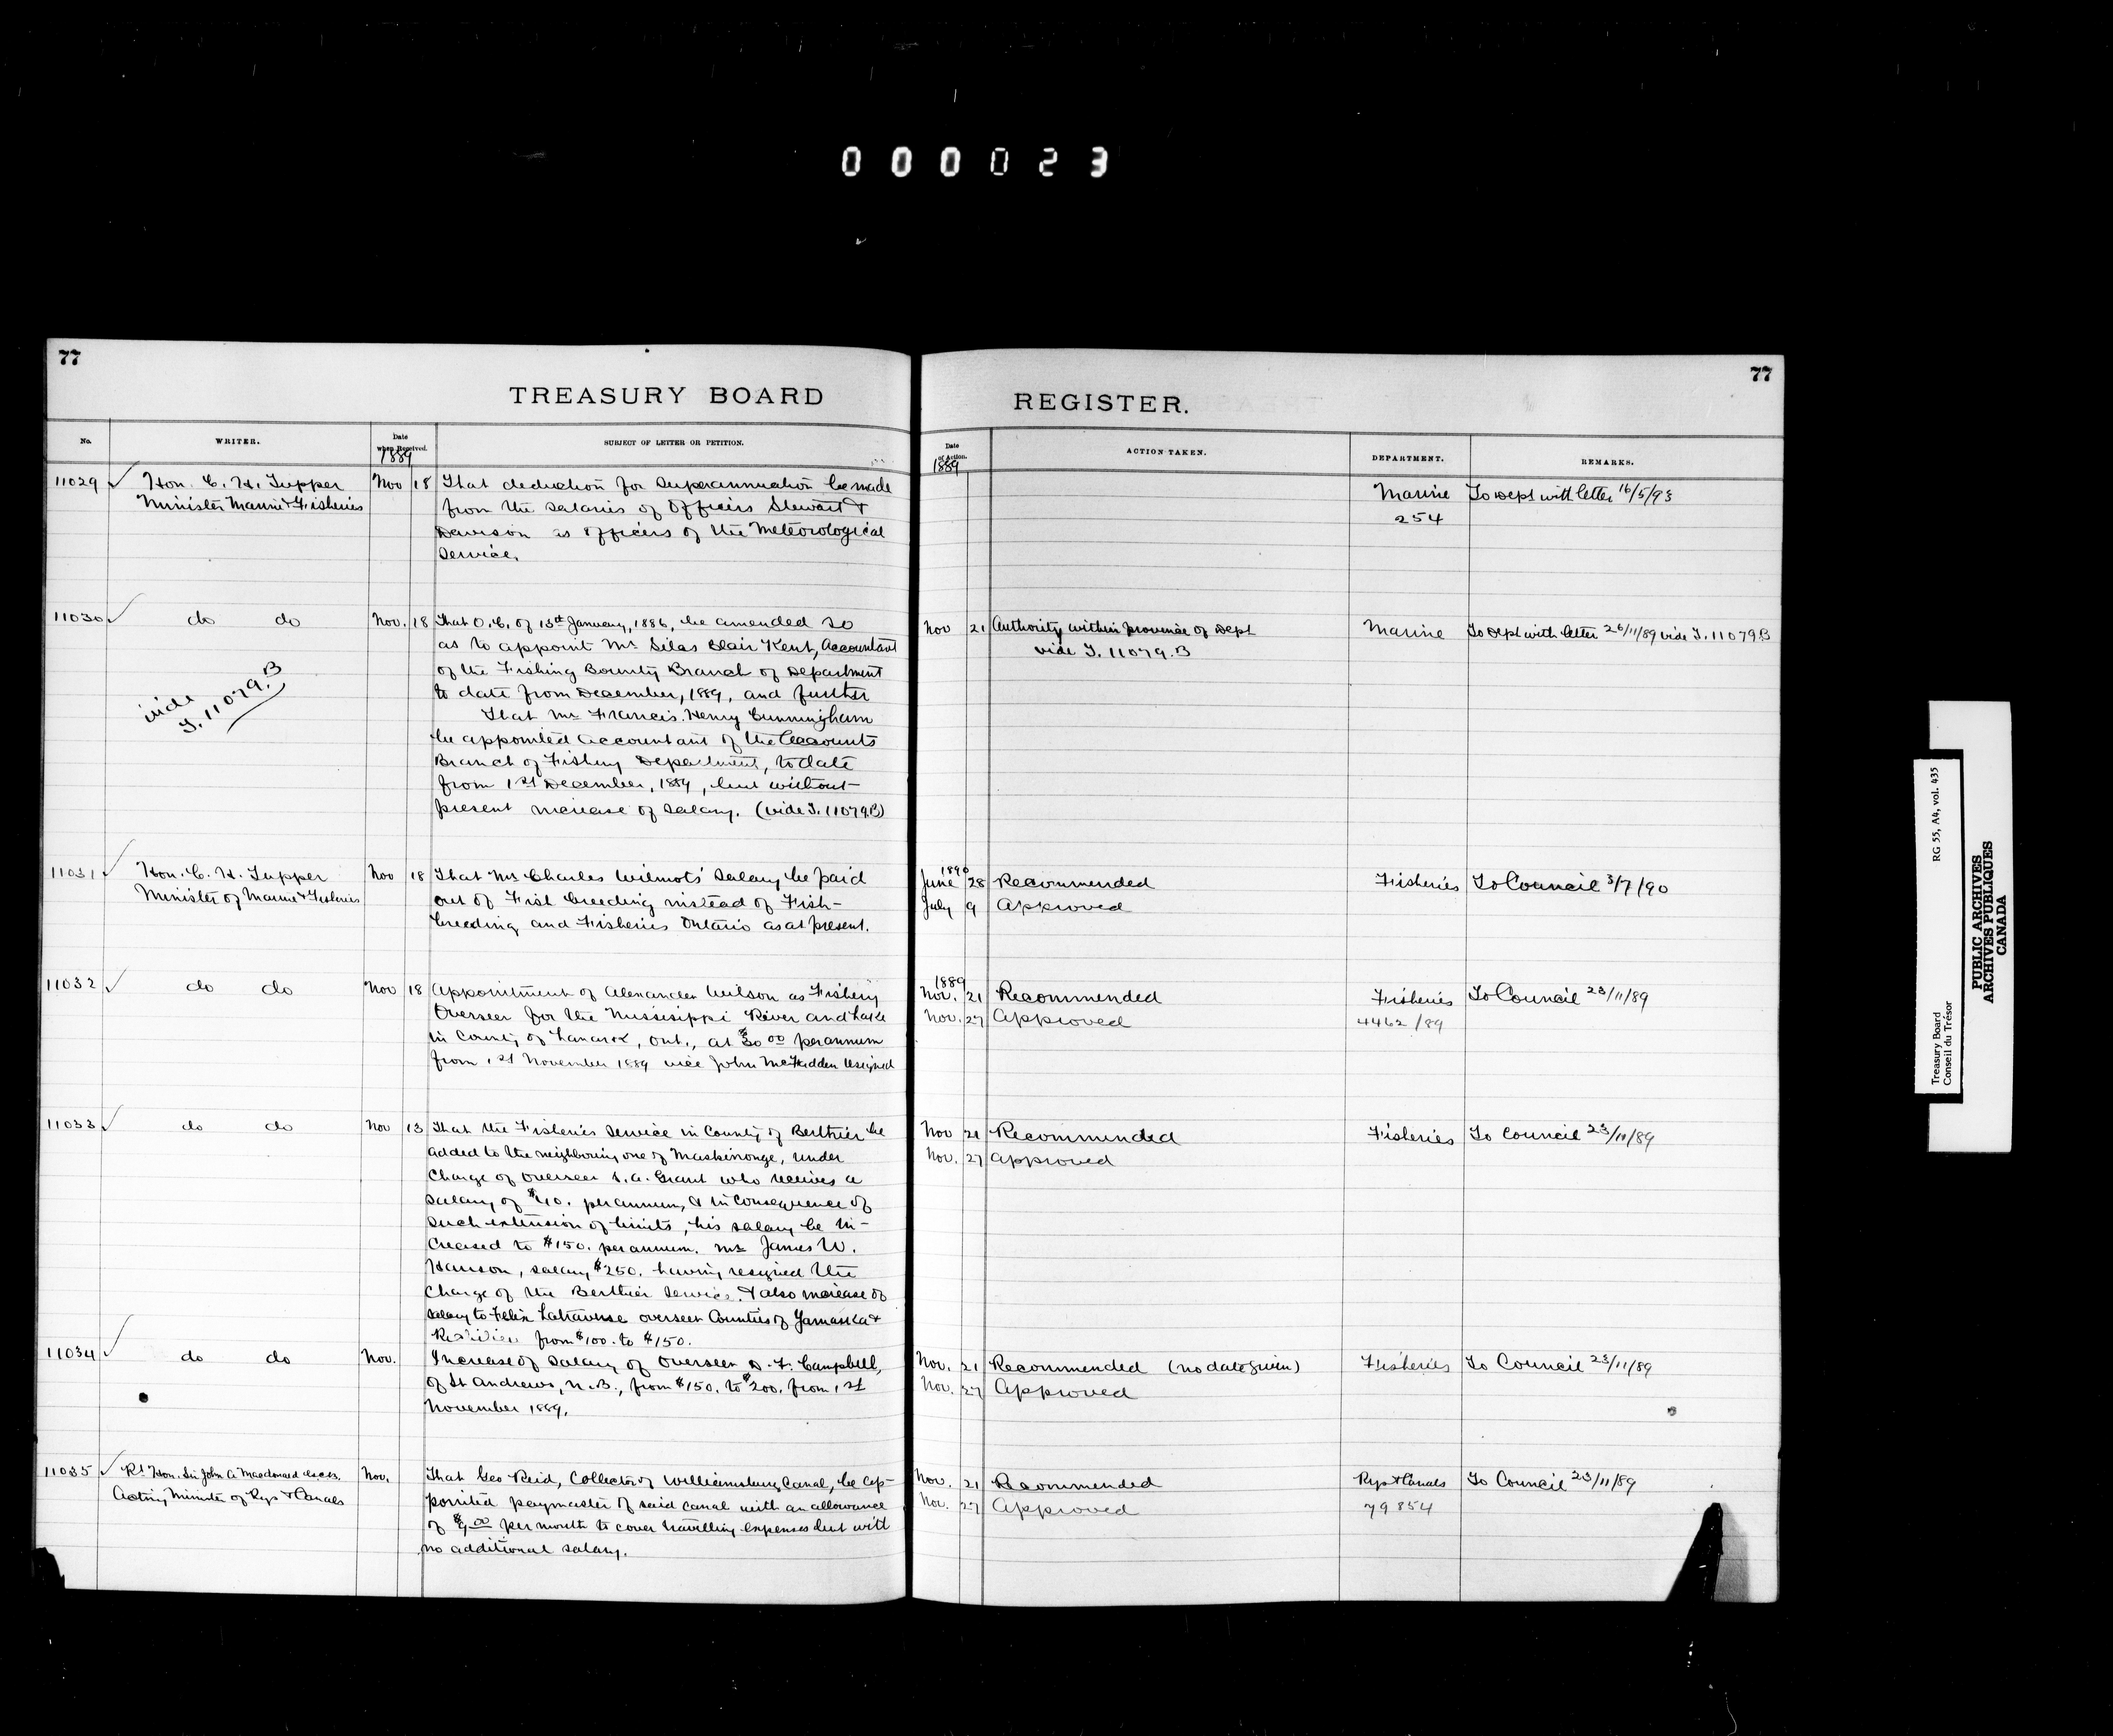 000023
77
77
TREASURY BOARD
REGISTER.
No.
WRITER.
Date
when Received.
1889
SUBJECT OF LETTER OR PETITION.
Date
of Action.
1889
ACTION TAKEN.
DEPARTMENT.
REMARKS.
11029 ✓ Hon. C. H. Tupper
Minister Marine & Fisheries
Nov 18
That deduction for Superannuation be made
from the Salaries of Officers Stewart &
Davison as officers of the Meteorological
Service.
Marine
254
To Dept with letter 16/5/93
11030 ✓ do do
Nov. 18
vide
T. 11079.B
That O.C. of 13th January, 1886, be amended so
as to appoint Mr Silas Blair Kent, Accountant
of the Fishing Bounty Branch of Department
to date from December, 1889, and further
That Mr Francis Henry Cunningham
be appointed Accountant of the Accounts
Branch of Fishery Department, to date
from 1st December, 1889, but without
present increase of salary. (vide T. 11079.B)
Nov 21 Authority within province of Dept
vide T. 11079.B
Marine
To Dept with letter 26/11/89 vide T. 11079B
11031 ✓ Hon. C. H. Tupper
Minister of Marine & Fisheries
Nov 18
That Mr Charles Wilmots' Salary be paid
out of Fish breeding instead of Fish-
breeding and Fisheries Ontario as at present.
1890
June 28 Recommended
July 9 Approved
Fisheries
To Council 3/7/90
11032 ✓ do do
Nov 18
Appointment of Alexander Wilson as Fishery
Overseer for the Mississippi River and Lake
in County of Lanark, Ont., at $30 00 per annum
from 1st November 1889 vice John McFadden resigned
1889
Nov. 21 Recommended
Nov. 27 Approved
Fisheries
4462/89
To Council 23/11/89
11033 ✓ do do
Nov 13
That the Fisheries Service in County of Berthier be
added to the neighbouring one of Maskinonge, under
Charge of Overseer A. Grant who receives a
salary of per annum, & in consequence of
such extension of limits, his salary be in-
creased to $150. per annum. Mr James W.
Hanson, salary $250. having resigned the
Charge of the Berthier Service. & also increase of
salary to Felix Latraverse overseer Counties of Yamaska &
Richelieu from $100. to $150.
Nov 21 Recommended
Nov. 27 Approved
Fisheries
To Council 23/11/89
11034 ✓ do do
Nov.
Increase of Salary of Overseer D. F. Campbell,
of St Andrews, N.B., from $150. to $200. from 1st
November 1889.
Nov. 21 Recommended (no date given)
Nov. 27 Approved
Fisheries
To Council 23/11/89
11035 ✓ Rt Hon. Sir John A. Macdonald
Acting Minister of Rys & Canals
Nov.
That Geo Reid, Collector of Williamsburg Canal, be ap-
pointed paymaster of said canal with an allowance
of $9.00 per month to cover travelling expenses but with
no additional salary.
Nov. 21 Recommended
Nov. 27 Approved
Rys & Canals
79854
To Council 23/11/89
Treasury Board
Conseil du Trésor
RG 55, A4, vol. 435
PUBLIC ARCHIVES
ARCHIVES PUBLIQUES
CANADA